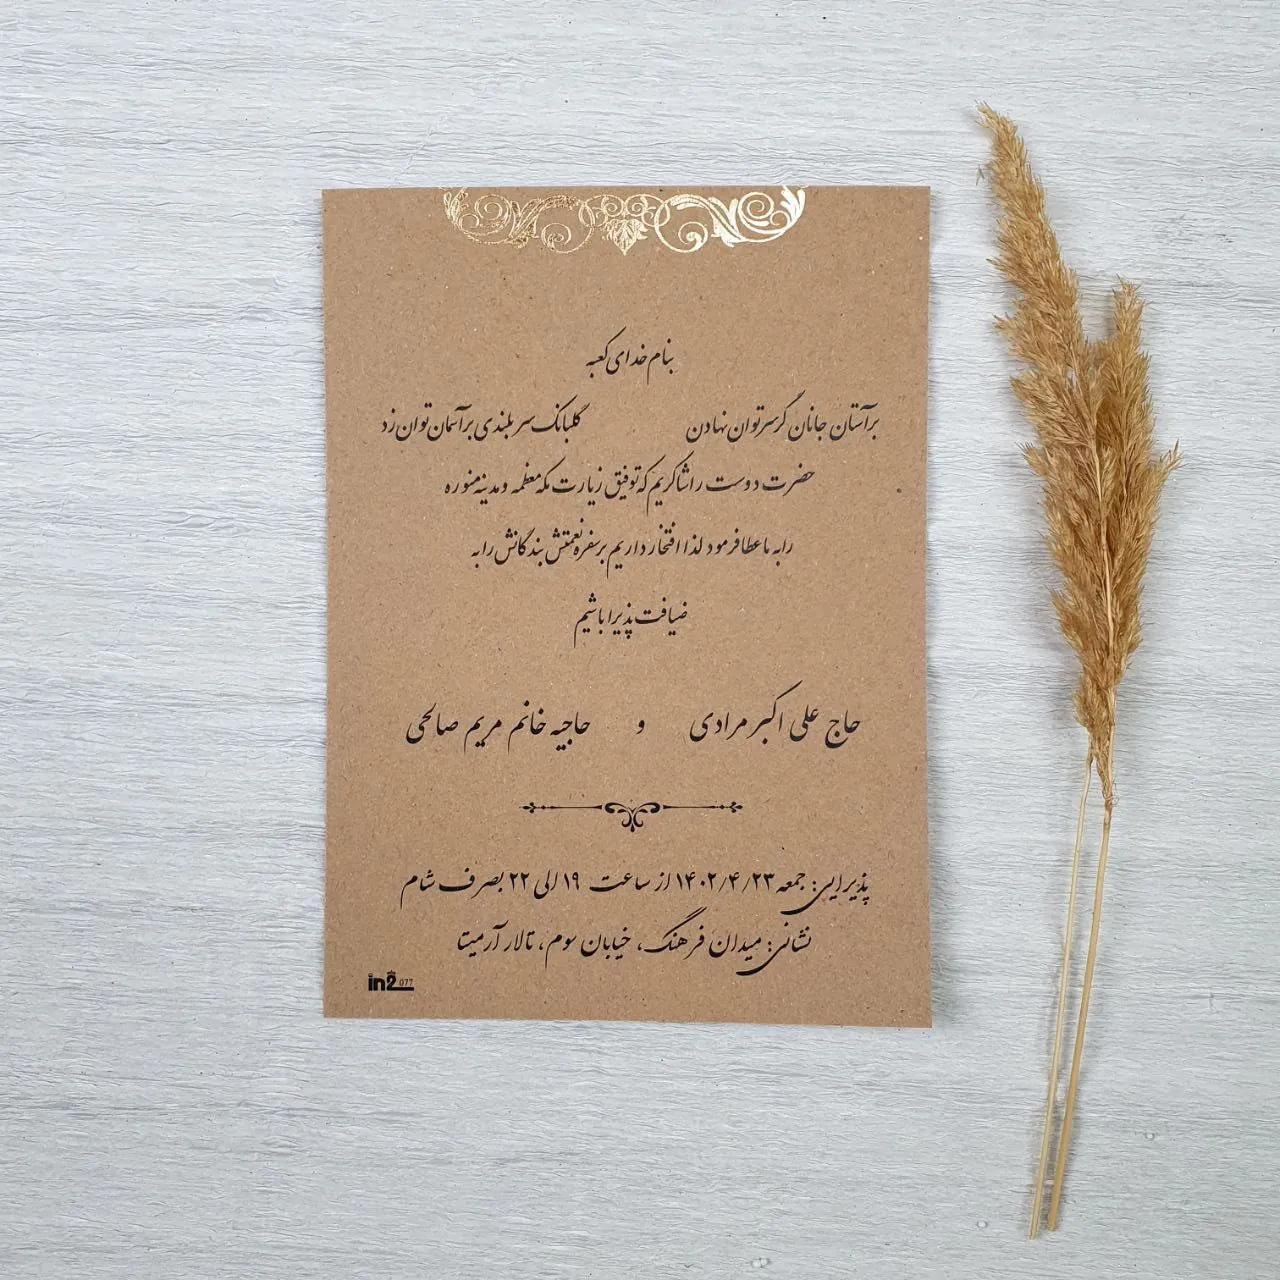 بنام خدای کعبه
بر آستان جانان گر سر توان نهادن گلبانگ سر بلندی بر آسمان توان زد
حضرت دوست را شاکریم که توفیق زیارت مکه معظمه و مدینه منوره
را به ما عطا فرمود لذا افتخار داریم بر سفره نعمتش بندگانش را به
ضیافت پذیرا باشیم
حاج علی اکبر مرادی و حاجیه خانم مریم صالحی
پذیرایی: جمعه ۱۴۰۲/۴/۲۳ از ساعت ۱۹ الی ۲۲ بصرف شام
نشانی: میدان فرهنگ، خیابان سوم، تالار آرمیتا
in2 077